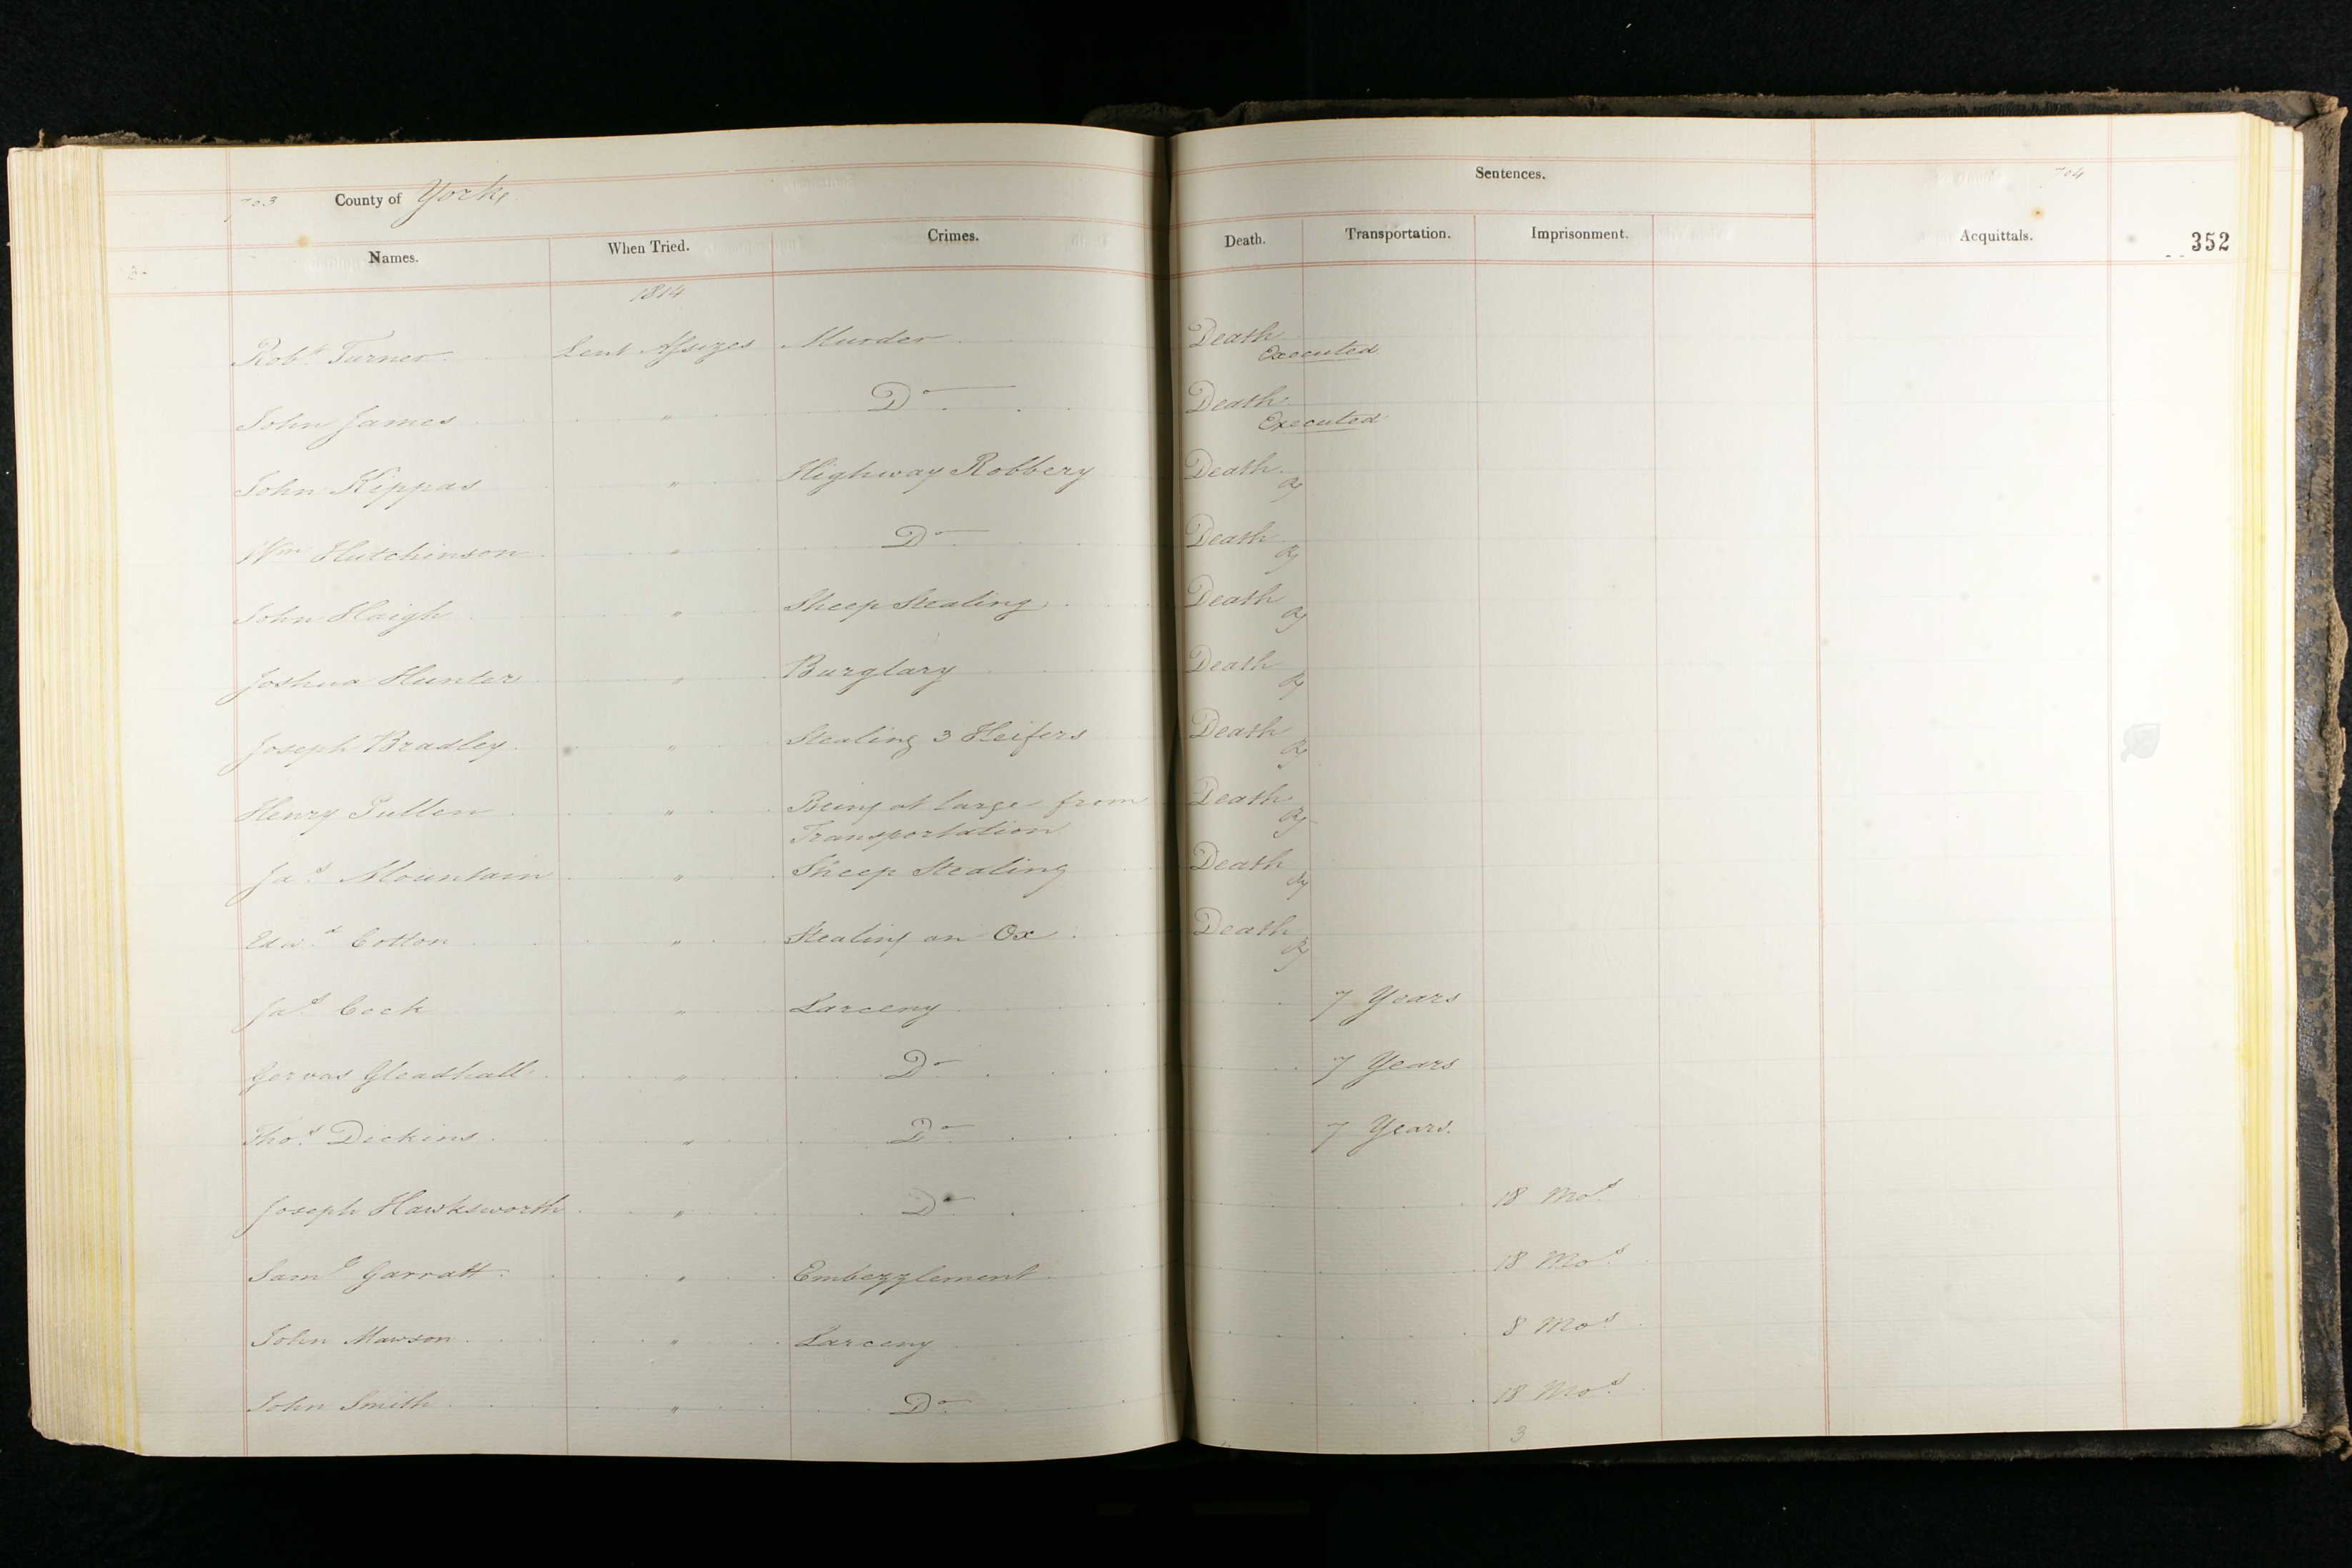 703 County of York,
Sentences.
704
Names. When Tried. Crimes. Death. Transportation. Imprisonment. Acquittals. 352
1814
Robt Turner Lent Assizes Murder Death
Executed
John James " Do Death
Executed
John Kippas " Highway Robbery Death
Wm Hutchinson " Do Death
John Haigh " Sheep Stealing Death
Joshua Hunter " Burglary Death
Joseph Bradley " Stealing 3 Heifers Death
Henry Pullen " Being at large from Death
Transportation
Jas Mountain " Sheep Stealing Death
Edwd Cotton " Stealing an Ox Death
Jas Cock " Larceny 7 Years
Jervas Gleadhall " Do 7 Years
Thos Dickins " Do 7 Years.
Joseph Hawksworth " Do 18 Mos
Saml Garratt " Embezzlement 18 Mos
John Mawson " Larceny 8 Mos
John Smith " Do 18 Mos
3